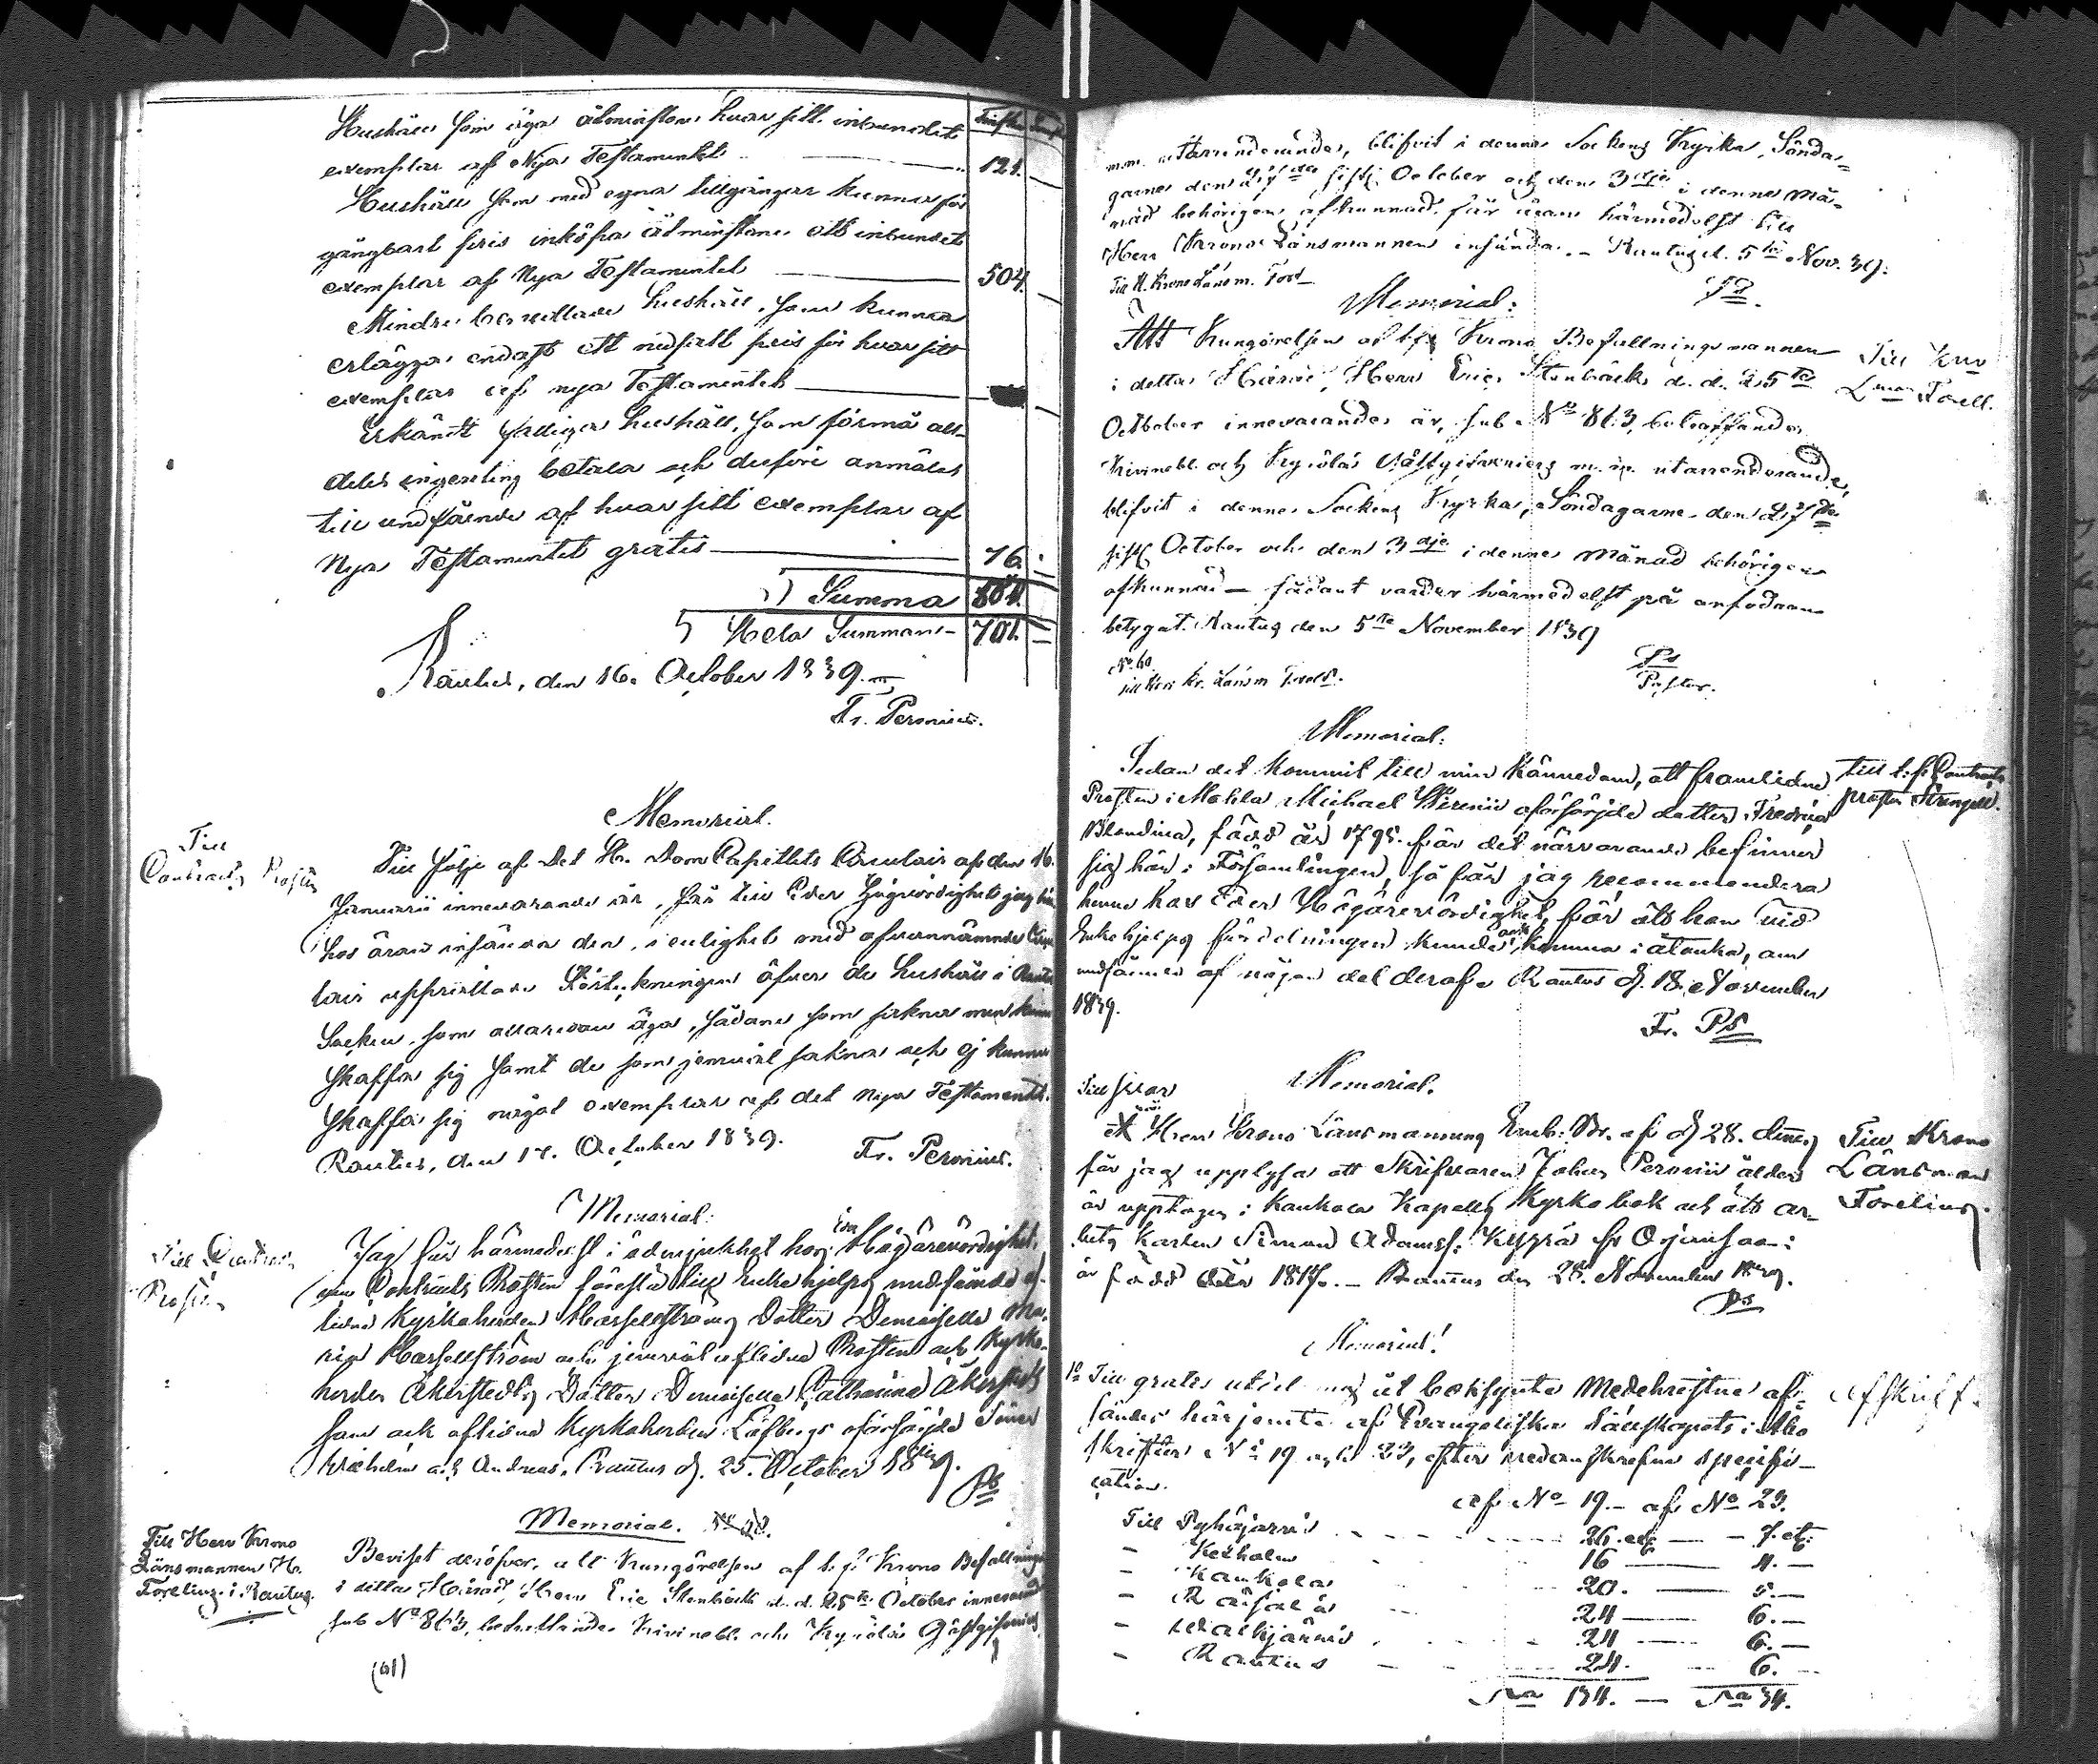 Hushåll som äga åtminstone hvar sitt inbundet
exemplar af Nya Testamentet 121.
Hushåll som med egna tillgångar kunna för
gångbart pris inköpa åtminstone ett inbundet
exemplar af Nya Testamentet 504.
Mindre bemedlade hushåll, som kunna
erlägga endast ett nedsatt pris för hvar sitt
exemplar af nya Testamentet
Erkändt fattiga hushåll, som förmå all-
deles ingenting betala och derföre anmälas
till undfående af hvar sitt exemplar af
Nya Testamentet gratis 76.
Summa
Hela Summan 701.
Rautus, den 16. October 1839.
Fr. Peronius.
Memorial.
Till
Contracts Prosten
Till följe af Det H. Dom Capitlets Circulair af den 16.
Januarii innevarande år, får till Eder Högvördighet jag
hos äran insända den, i enlighet med ofvannämnde
lair upprättade Förteckningen öfver de hushåll i
Socken, som allaredan äga, sådane som sakna men
skaffa sig samt de som jemväl sakna och ej kunna
skaffa sig något exemplar af det nya Testamentet.
Rautus, den 17. October 1839.
Fr. Peronius.
Memorial.
Till Contracts
Prosten
Jag får härmedelst i ödmjukhet hos Högärevördighet
Contracts Prosten föreslå till enkehjelps undfående
lidne Kyrkoherden Hasselströms Dotter Demoiselle Ma-
ria Hasselström och jemväl aflidne Prosten och Kyrko-
herden Åkerstedts Dotter Demoiselle Catharina Åkerstedt
som ock aflidne Kyrkoherden Löfbergs oförsörjde Söner
Wilhelm och Andreas. Rautus d. 25. October 1839.
Ps
Memorial.
Till Herr Krono
Länsmannen H.
Forelius i Rautus.
Beviset deröfver, att Kungörelsen af t. f. Krono Befallnings
i detta Härad, Herr Eric Stenbäck d. d. 25te October innevarande
sub No 863, beträffande Kivinebb och Kyrölä Gästgifveriers
(61)
m.m. utarrenderande, blifvit i denna Sockens Kyrka, Sönda-
garne den 27de sistl. October och den 3dje i denne Må-
nad behörigen afkunnad, får äran härmedelst till
Herr Krono Länsmannen insända. Rautus d. 5te Nov. 39.
Till H. Krono Länsm. Forel.
Ps.
Memorial:
Till Kro
Lman Forell.
Att Kungörelsen af t.f. Krono Befallningsmannen
i detta Härad, Herr Eric Stenbäck d. d. 25te
October innevarande år, sub No 863, beträffande
Kivinebb och Kyrölä Gästgifveriers m. m. utarrenderande,
blifvit i denne Sockens Kyrka, Söndagarne den 27de
sistl. October och den 3dje i denne Månad behörigen
afkunnad — sådant varder härmedelst på anfodran
betygat. Rautus den 5te November 1839
No 60
till Herr Kr. Länsm Forell.
Ps
Pastor.
Memorial:
Till t.f. Contracts
prosten Strengell.
Sedan det kommit till min kännedom, att framlidne
Prosten i Mohla Michael Wirenii oförsörjde dotter Fredrica
Blandina, född år 1795. för det närvarande befinner
sig här i Församlingen, så får jag recommendera
henne hos Eder Högärevördighet, för att hon vid
Enkehjelps fördelningen kunde ock komma i åtanka, om
undfående af någon del deraf. Rautus d. 18. November
1839.
Fr. Ps
Till svar
Memorial.
Till Krono
Länsman
Forelius.
å Herr Krono Länsmannens Emb: Br. af d 28. dennes
får jag upplysa att Skrifvaren Johan Peronii ålder
är upptagen i Kaukola Kapells Kyrkobok och att ar-
bets Karlen Simon Adamss. Kyyrä fr Orjansaari
är född år 1817. Rautus den 28. November 1839.
Ps
Memorial!
Afskrift.
Till gratis utdelning åt behöfvande Medchristna af-
sändes härjemte af Evangeliska Sällskapets i Åbo
skrifter No 19 och 23, efter nedanskrefne specifi-
cation.
af No 19.— af No 23.
Till Pyhäjärvi 26. ex — 7. ex.
— Kexholm 16 — 4. —
— Kaukola 20. — 5. —
— Räisälä 24 — 6. —
— Walkjärvi 24 — 6. —
— Rautus 24. — 6. —
Sa 134. — Sa 34.